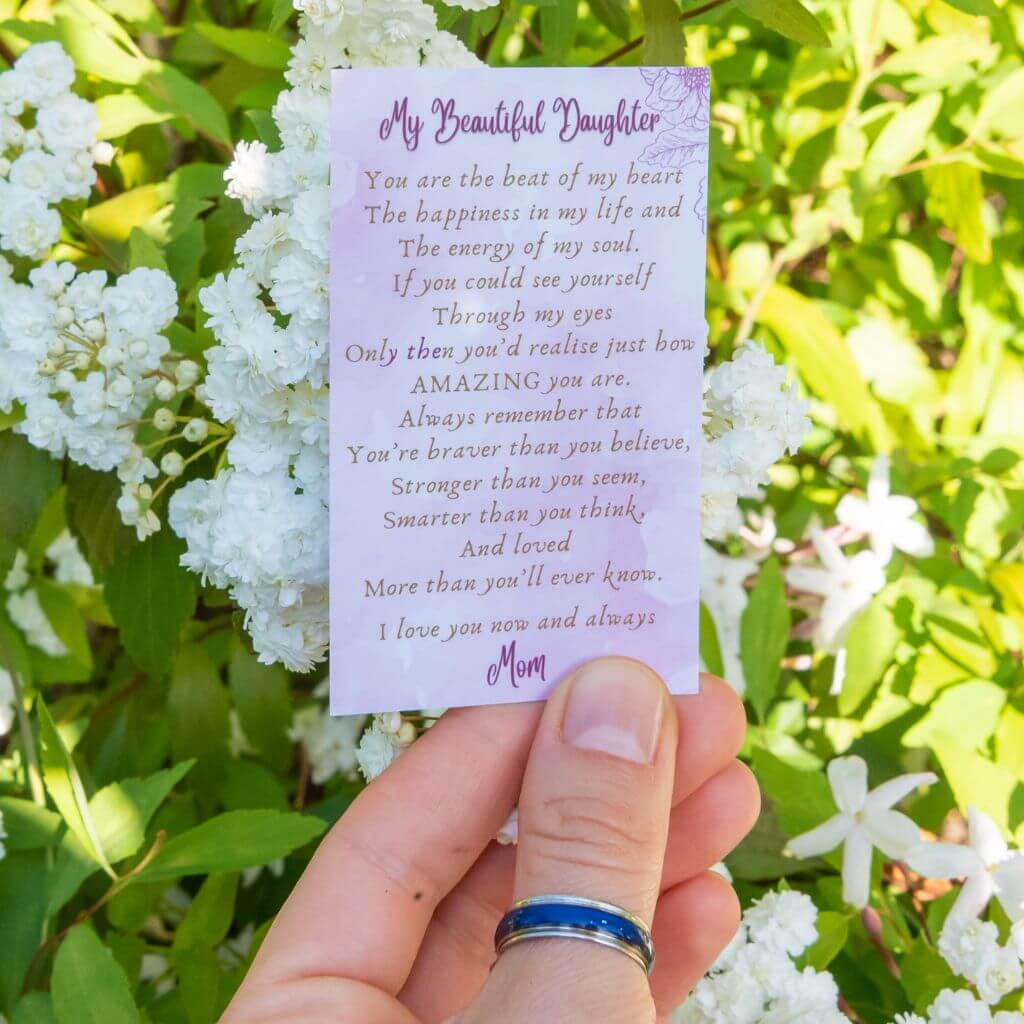 My Beautiful Daughter
You are the beat of my heart
The happiness in my life and
The energy of my soul.
If you could see yourself
Through my eyes
Only then you'd realise just how
AMAZING you are.
Always remember that
You're braver than you believe,
Stronger than you seem,
Smarter than you think,
And loved
More than you'll ever know.
I love you now and always
Mom